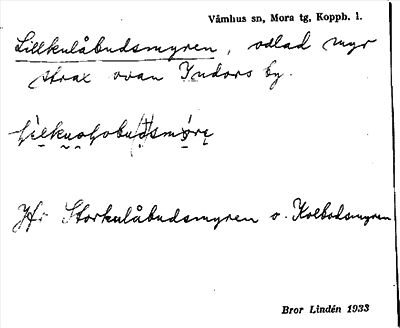 Våmhus sn, Mora tg, Kopph. l.
Lillkulåbudsmyren, odlad myr
strax ovan Indors by.
Jfr Storkulåbudsmyren o. Kolbodsmyren
Bror Lindén 1933